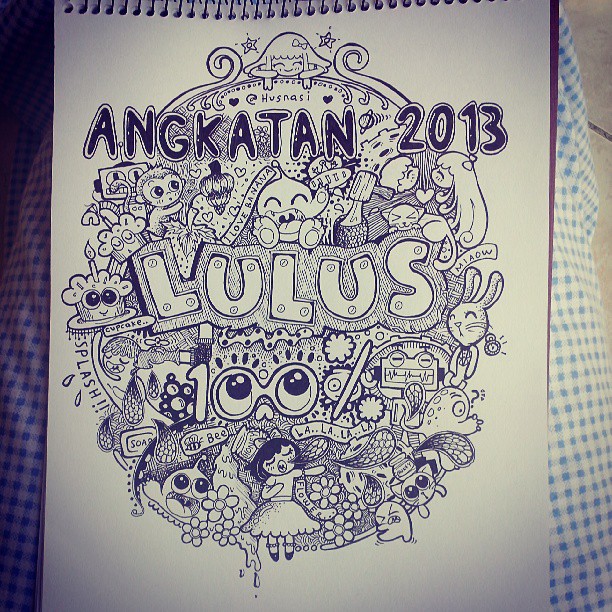 @Husnasi
ANGKATAN 2013
LOVE BANANA
LULUS
MIAOW
CUPCAKE
SPLASH!!
100%
LA..LA..LA..LA
SOAP
BEE